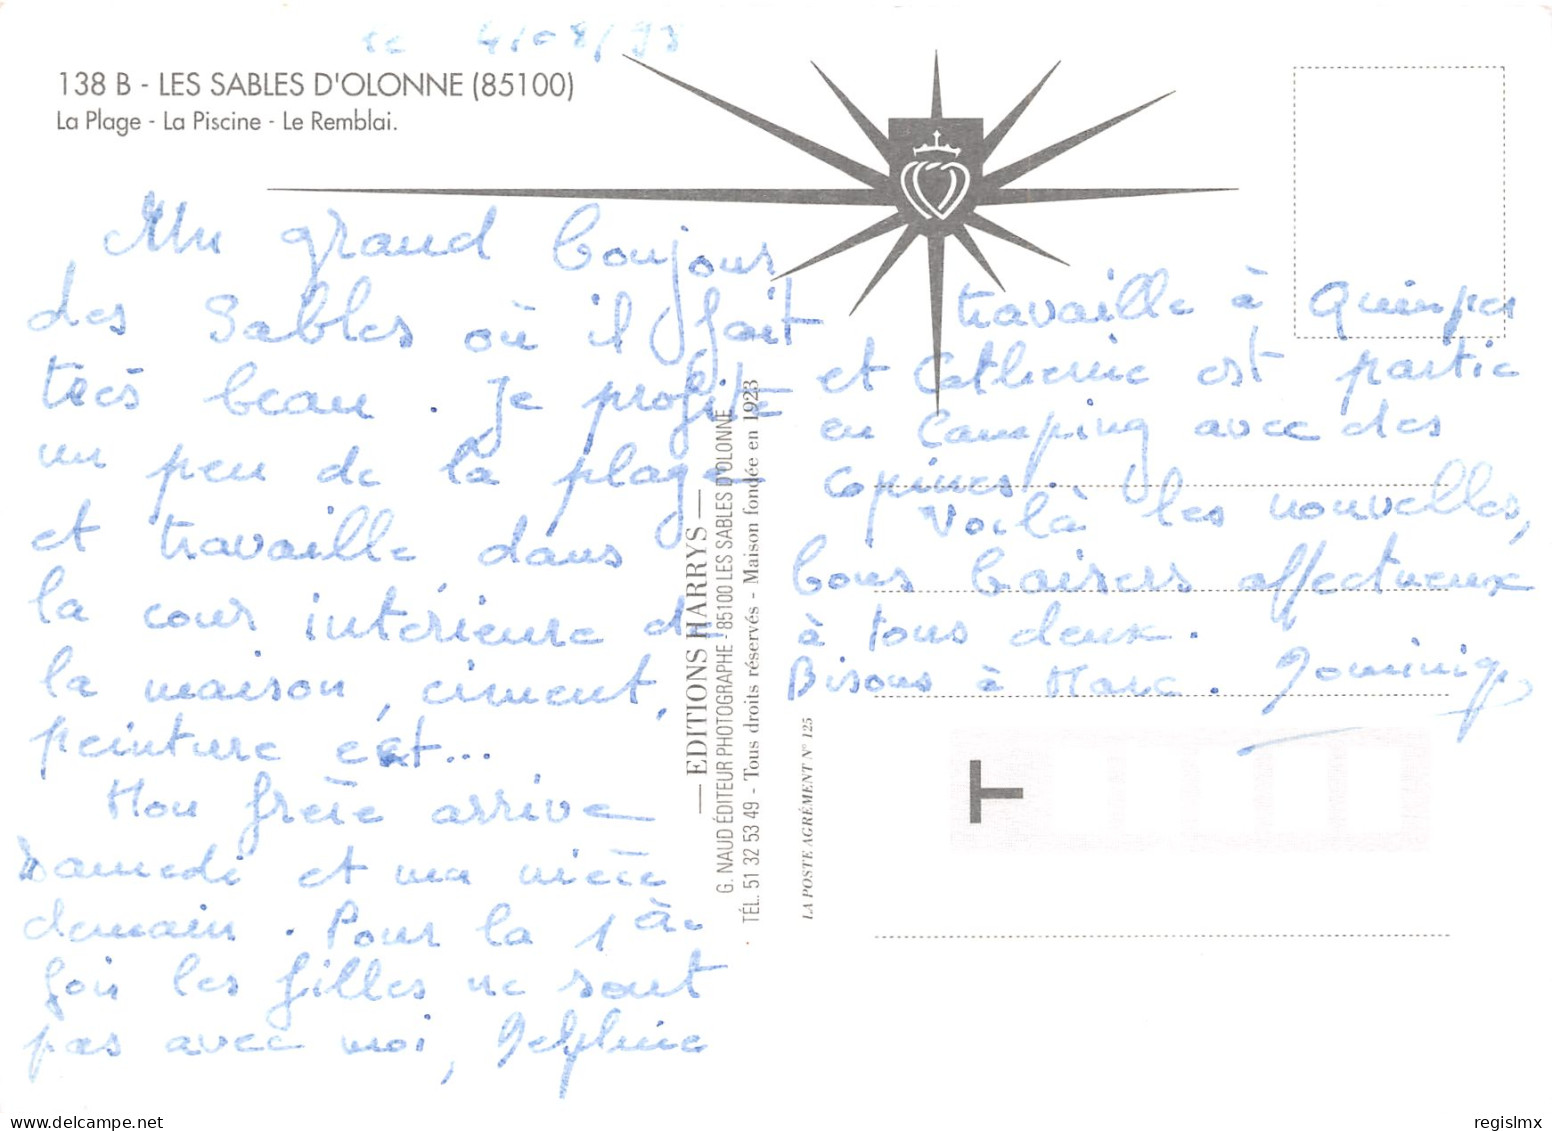 le 4/08/93
138 B - LES SABLES D'OLONNE (85100)
La Plage - La Piscine - Le Remblai.
Un grand bonjour
des Sables où il fait
très beau. Je profite
un peu de la plage
et travaille dans
la cour intérieure de
la maison, ciment,
peinture ect...
Mon frère arrive
samedi et ma nièce
demain. Pour la 1ère
fois les filles ne sont
pas avec moi, Delphine
travaille à Quimper
et Catherine est partie
en camping avec des
copines.
Voilà les nouvelles,
bons baisers affectueux
à tous deux.
Bisous à Marc. Dominique
— EDITIONS HARRYS —
G. NAUD ÉDITEUR PHOTOGRAPHE - 85100 LES SABLES D'OLONNE
TÉL. 51 32 53 49 - Tous droits réservés - Maison fondée en 1923
LA POSTE AGRÉMENT N° 125
T
delcampe.net
regislmx